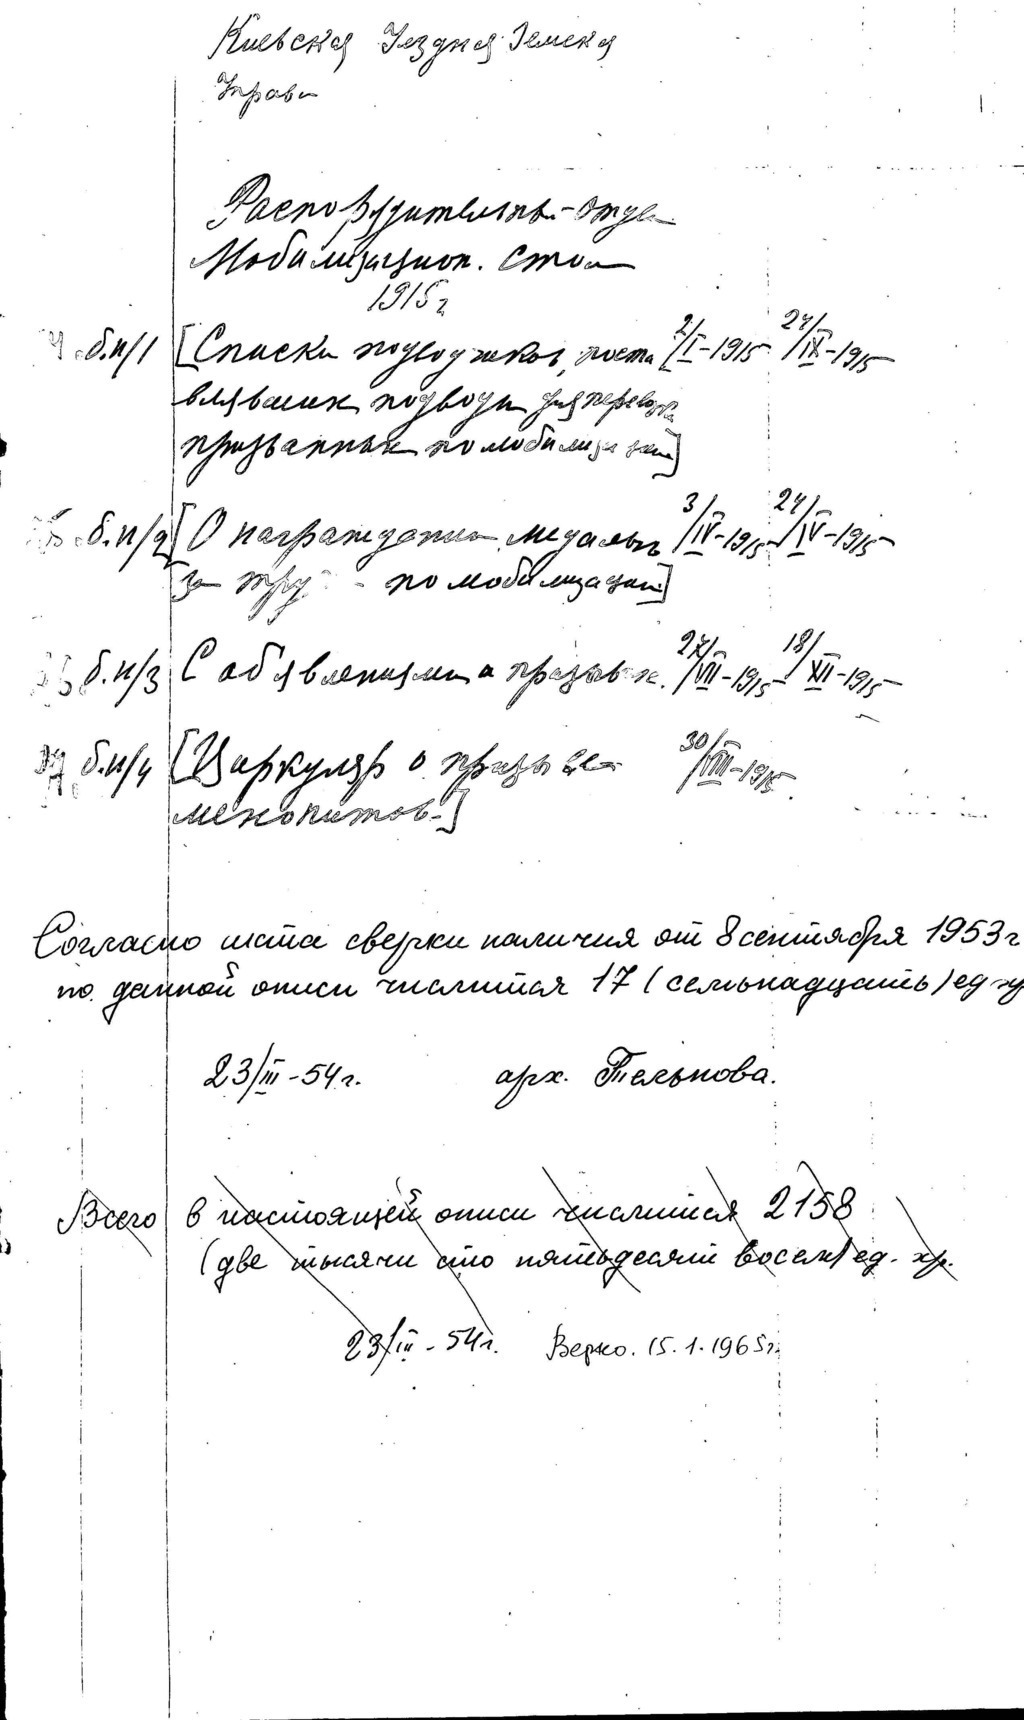 Киевская Уездная Земская
Управ
Распорядительн. отдел
Мобилизацион. стол
1915 г
б.н/1 [Списки подводчиков, поста 2/I-1915 24/IX-1915
влявших подводы для перевозки
призванных по мобилизации]
б.н/2 [О награждении медалью 3/IV-1915 24/IV-1915
за тру по мобилизации]
б.н/3 С объявлениями о призыве. 27/VII-1915 18/XII-1915
б.н/4 [Циркуляр о призыве 30/VIII-1915
менонитов]
Согласно листа сверки наличия от 8 сентября 1953 г
по данной описи числится 17 (семьнадцать) ед хр
23/III-54 г. арх. Телькова.
Всего в настоящей описи числится 2158
(две тысячи сто пятьдесят восем) ед. хр.
23/III-54 г. Верно. 15.1.1965 г.